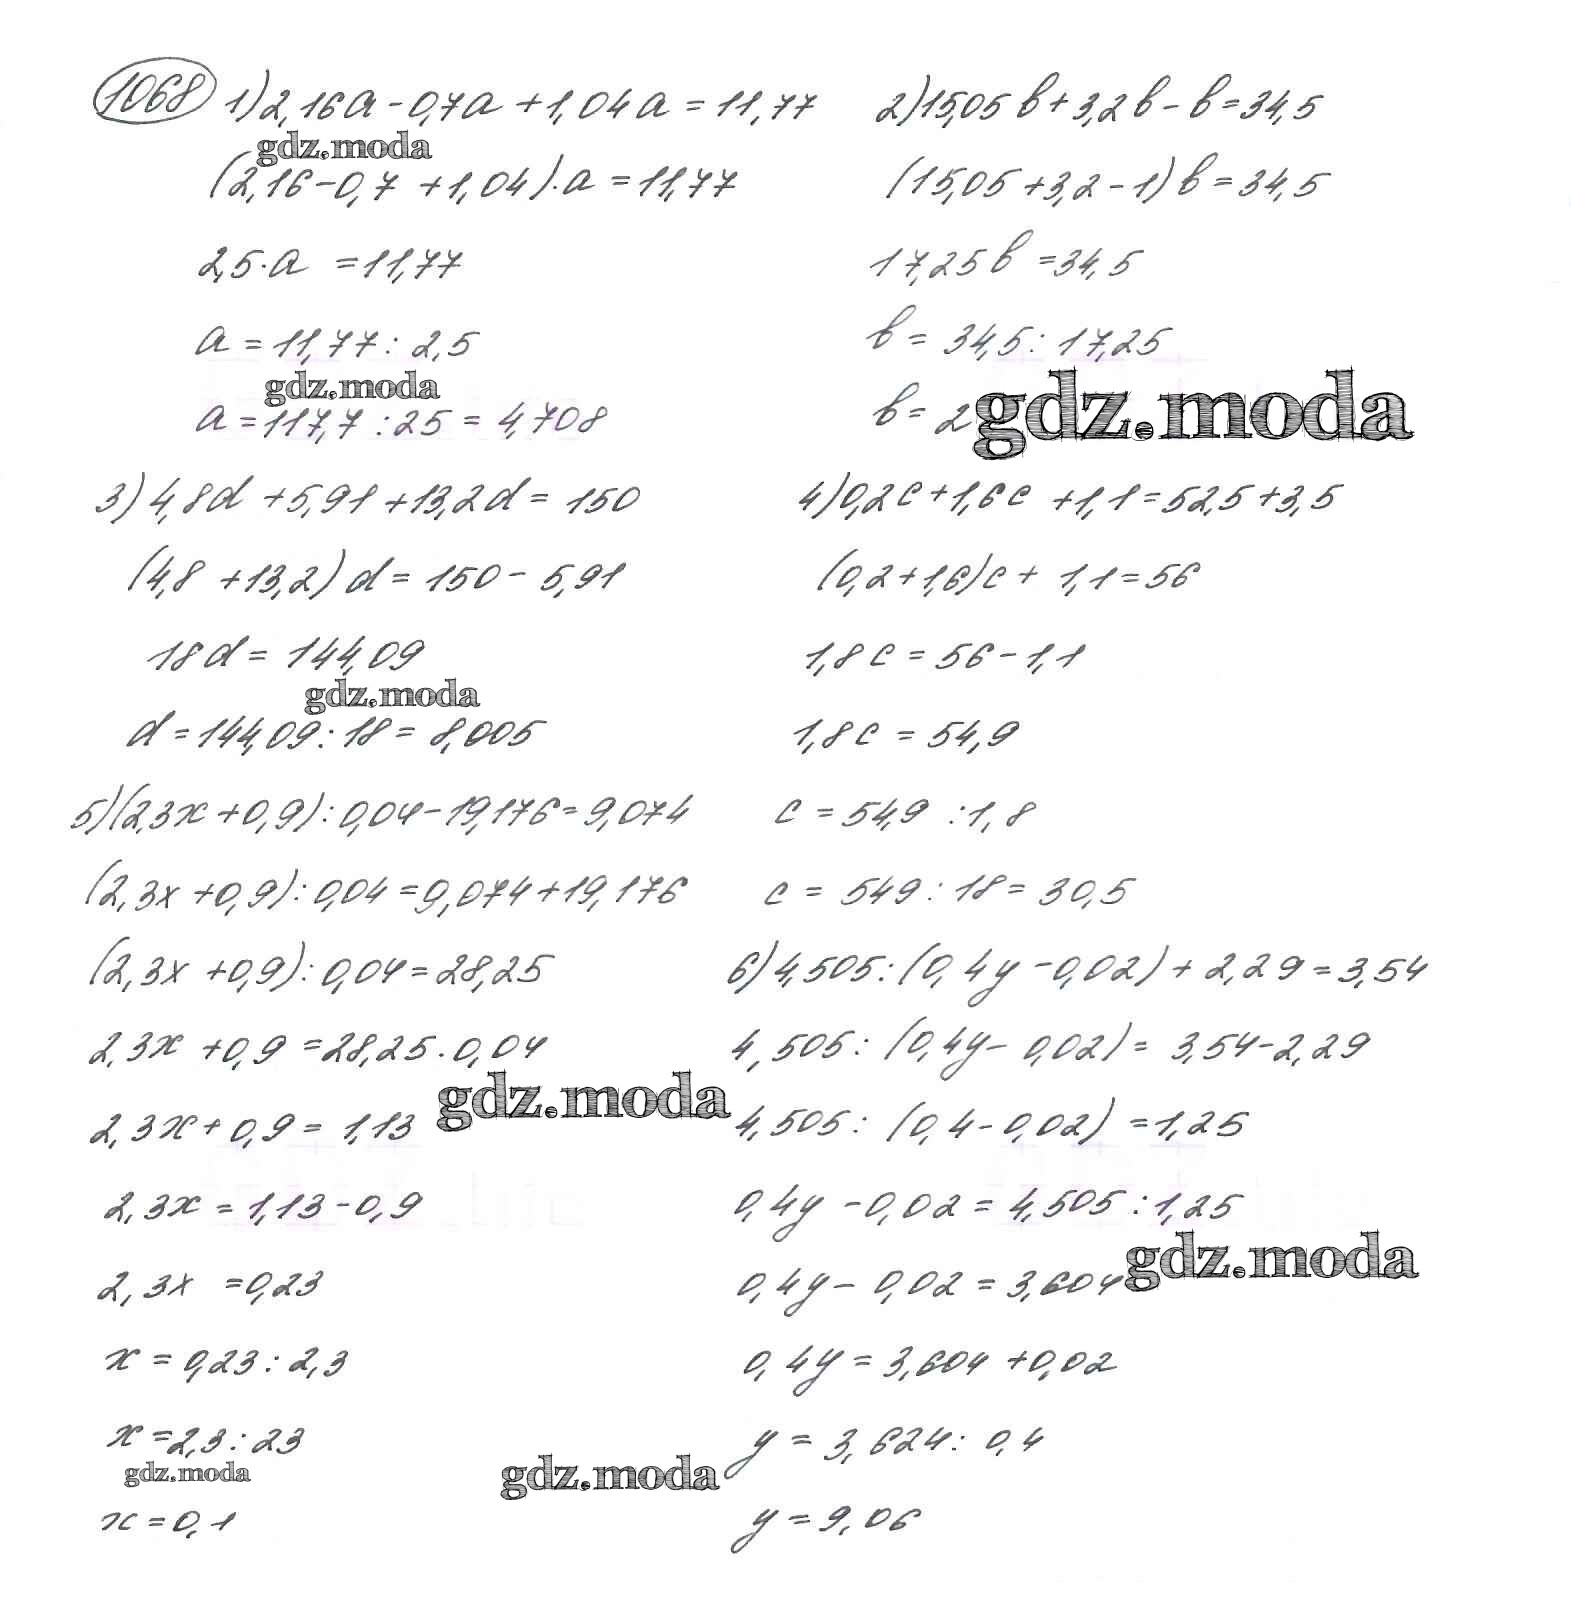 1068 1) 2,16a - 0,7a + 1,04a = 11,77
gdz.moda
(2,16 - 0,7 + 1,04)·a = 11,77
2,5·a = 11,77
a = 11,77 : 2,5
gdz.moda
a = 117,7 : 25 = 4,708
2) 15,05b + 3,2b - b = 34,5
(15,05 + 3,2 - 1)b = 34,5
17,25b = 34,5
b = 34,5 : 17,25
b = 2
gdz.moda
3) 4,8d + 5,91 + 13,2d = 150
(4,8 + 13,2)d = 150 - 5,91
18d = 144,09
gdz.moda
d = 144,09 : 18 = 8,005
4) 0,2c + 1,6c + 1,1 = 52,5 + 3,5
(0,2 + 1,6)c + 1,1 = 56
1,8c = 56 - 1,1
1,8c = 54,9
c = 54,9 : 1,8
c = 549 : 18 = 30,5
5) (2,3x + 0,9) : 0,04 - 19,176 = 9,074
(2,3x + 0,9) : 0,04 = 9,074 + 19,176
(2,3x + 0,9) : 0,04 = 28,25
2,3x + 0,9 = 28,25·0,04
gdz.moda
2,3x + 0,9 = 1,13
2,3x = 1,13 - 0,9
2,3x = 0,23
x = 0,23 : 2,3
x = 2,3 : 23
gdz.moda
x = 0,1
6) 4,505 : (0,4y - 0,02) + 2,29 = 3,54
4,505 : (0,4y - 0,02) = 3,54 - 2,29
4,505 : (0,4 - 0,02) = 1,25
0,4y - 0,02 = 4,505 : 1,25
gdz.moda
0,4y - 0,02 = 3,604
0,4y = 3,604 + 0,02
y = 3,624 : 0,4
gdz.moda
y = 9,06